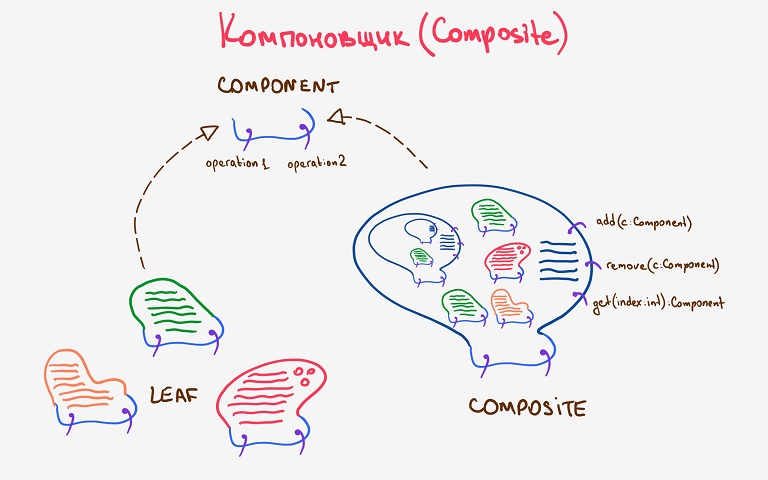 Компоновщик (Composite)
COMPONENT
operation1 operation2
add(c:Component)
remove(c:Component)
get(index:int):Component
LEAF
COMPOSITE